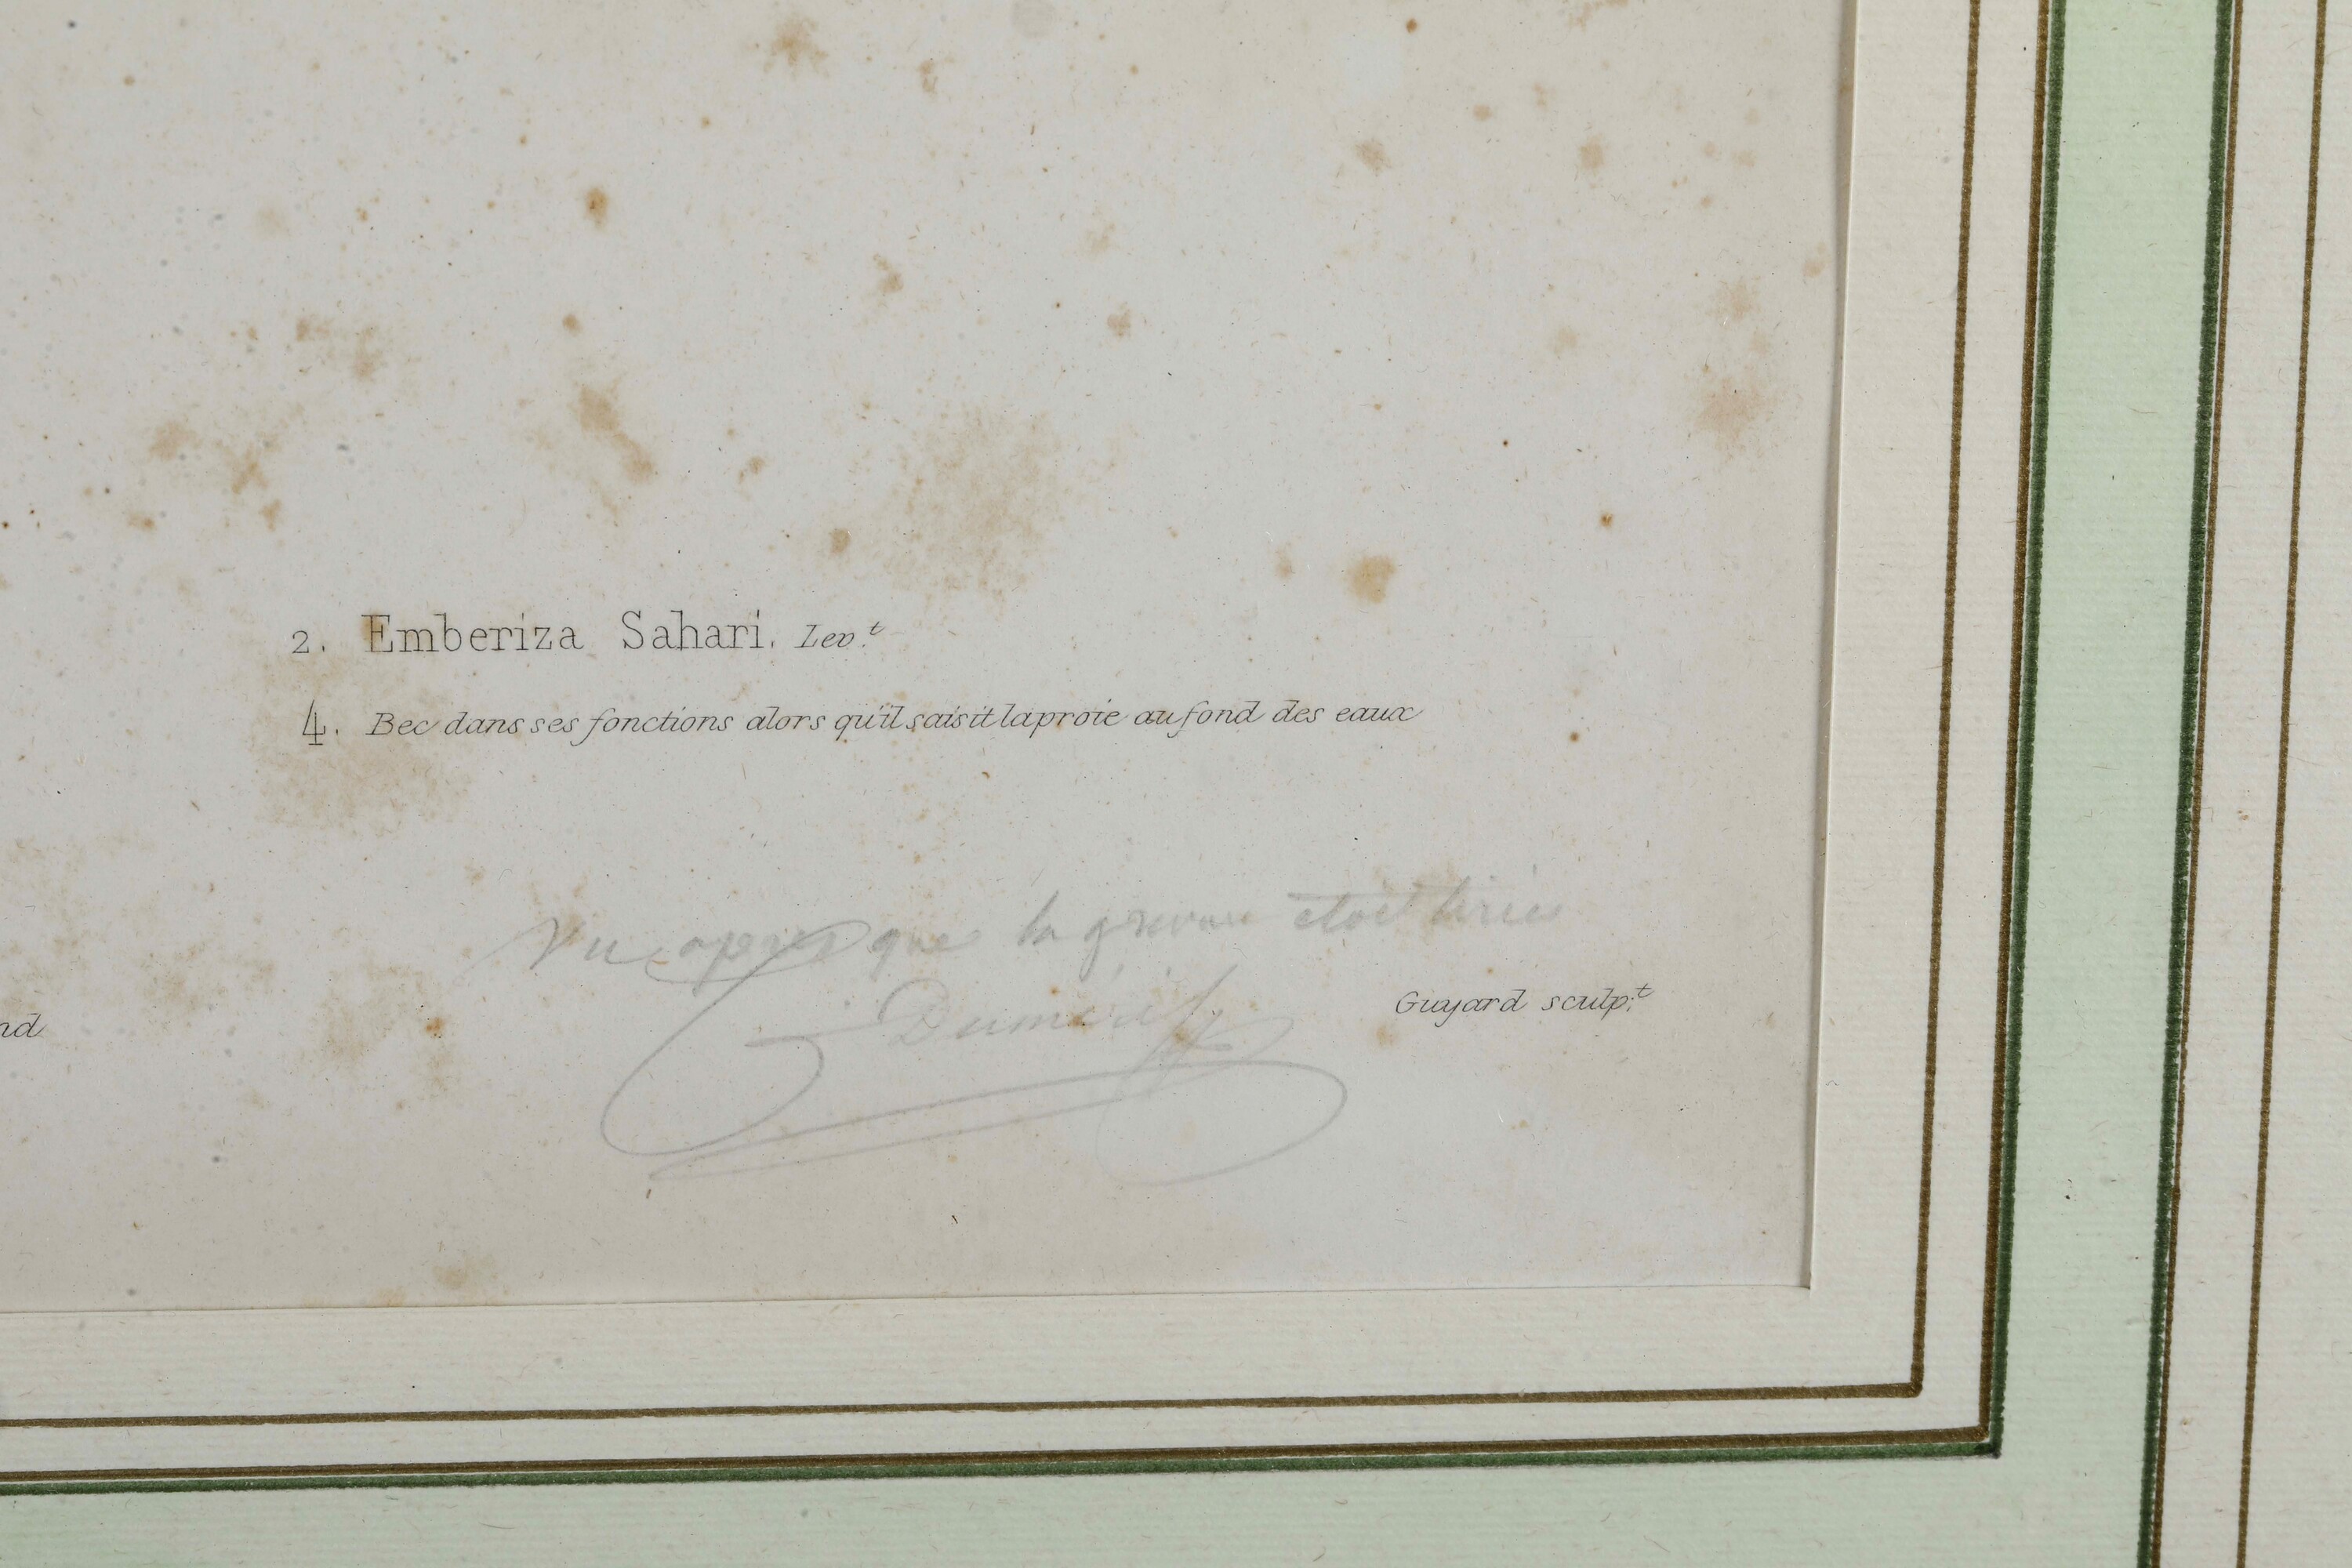 2. Emberiza Sahari. Lev.t
4. Bec dans ses fonctions alors qu'il saisit la proie au fond des eaux
Vu après que la gravure étoit tirée
Duméril
nd
Guyard sculp.t